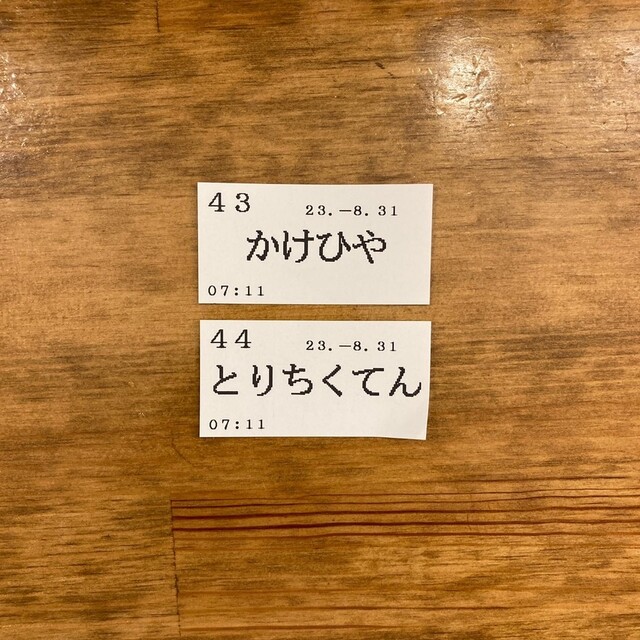 43
23.-8.31
かけひや
07:11
44
23.-8.31
とりちくてん
07:11